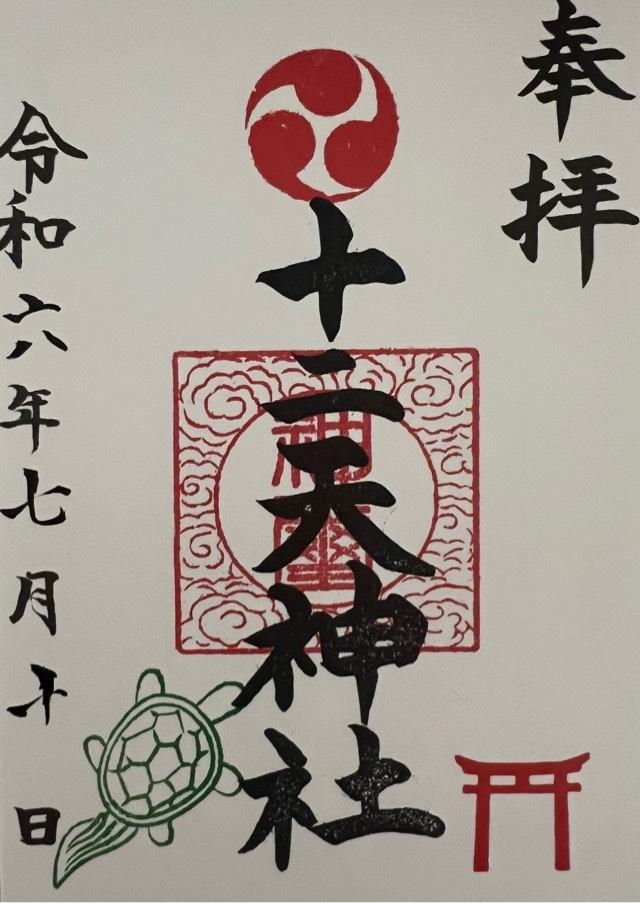 奉拝
十二天神社
令和六年七月十日